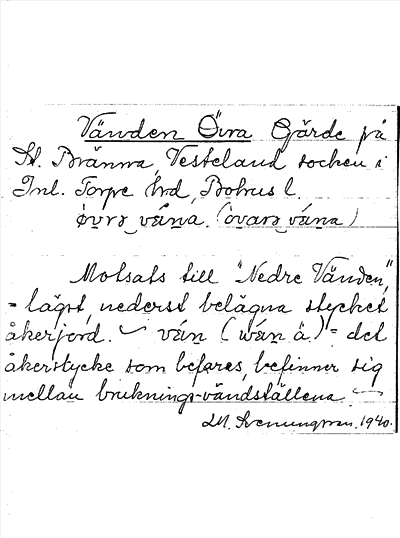 Vänden Övra Gärde på
St. Bränna, Vesteland socken i
Inl. Torpe Hrd, Bohus l.
övrə vä́na. (övarə vä́na)
Motsats till "Nedre Vänden",
= lägst, nederst belägna stycket
åkerjord. – vén (wén ä.) = det
åkerstycke som befares, befinner sig
mellan bruknings-vändställena. –
M. Svenungsson. 1940.